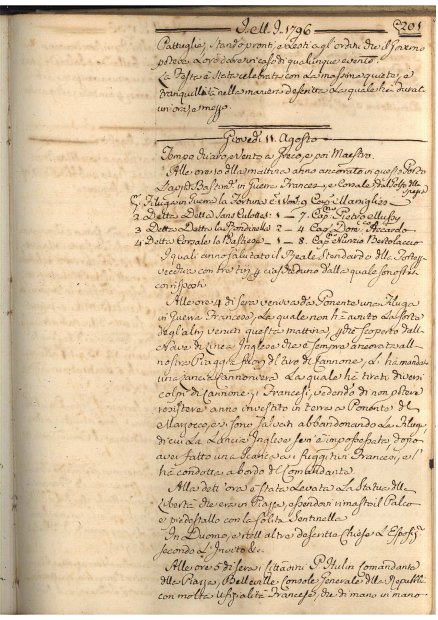 I. M. 1796
201
Pattuglie, stando pronti, e Lesti agl'ordini che il Governo
potea loro dare in caso di qualunque evento.
La Festa è stata celebrata con La massima quiete, e
tranquillità nella maniera descritta La quale hà durat
un'ora, e mezzo.
Giovedì 11. Agosto
Tempo chiaro, e vento a Greco, e poi Maestro.
Alle ore della mattina anno ancorato in questo Porto
in Guerra Frances. e Corsale dal Golfo della
Filuga in Guerra la Fortuna
2 Detta Detta Sans Culottes 1 — 7 Cap.
3 Detta Detta La 2 — 4 Cap. Dom. Accardo
4 Detta Corsale la 1 — 8 Cap. Nunzio Bertolaccio
I quali anno salutato il Reale Stendardo della Fortez.
con tre tiri ciascheduno dalla quale sono stati
corrisposti.
Alle ore 4 di sera veniva da Ponente una Filuga
in Guerra Francese, La quale non hà avuto La sorte
degl'altri venuti questa mattina, scoperto dall
Nave di Linea Inglese che è sempre ancorata all
nostra Piaggia fuori del tiro di Cannone, Li hà mandat
una Lancia Cannoniera La quale hà tirati diversi
colpi di Cannone; i Francesi, vedendo di non potere
resistere anno investito in terra a Ponente del
Marzocco, e si sono salvati abbandonando La Filuga
di cui La Lancia Inglese sen'è impossessata dopo
aver fatto una scarica a i fuggitivi Francesi, e l'
hà condotta a bordo del Comandante.
Alla dett'ora è stata Levata La Statua della
Libertà che era in Piazza, essendovi rimasto il Palco
e piedestallo con la solita Sentinella
In Duomo, e nell'altre descritte Chiese L'Esposiz.
secondo L'Invito &c.
Alle ore 5 di sera i Cittadini Comandante
della Piazza, Belleville Console Generale della Repubbli
con molta Ufizialità Francese, che di mano in mano